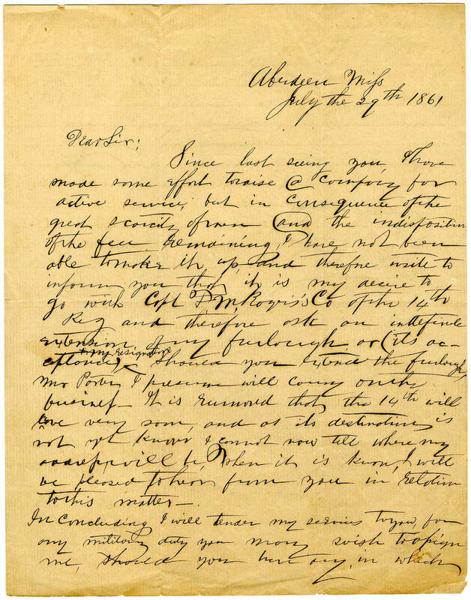 Aberdeen Miss
July the 29th 1861
Dear Sir;
Since last seeing you, I have
made some effort to raise a company for
active service; but in consequence of the
great scarcity of men and the indisposition
of the few remaining, I have not been
able to make it up and therefore write to
inform you that it is my desire to
go with Capt Rogers's Co of the 14th
Reg and therefore ask an indefinite
extension of my furlough or (its ac-
ceptance) my resignation. Should you extend the furlough,
Mrs Porter I presume will carry on the
business. It is rumored that the 14th will
very soon, and as its destination is
not yet known I cannot now tell where my
address will be, When it is known, I will
be pleased to hear from you in relation
to this matter—
In concluding I will tender my services to you, for
any military duty you may wish to assign
me, should you have any, in which